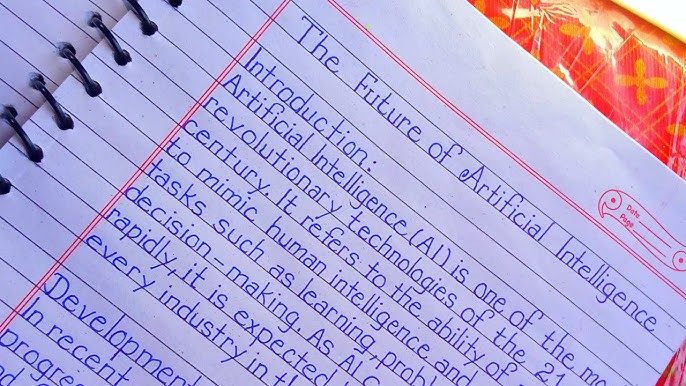 The Future of Artificial Intelligence
Date
Page
Introduction:
Artificial Intelligence (AI) is one of the
revolutionary technologies of the 21
century. It refers to the ability of
to mimic human intelligence and
tasks such as learning,
decision-making. As AI
rapidly, it is expected
every industry in
Development
In recent